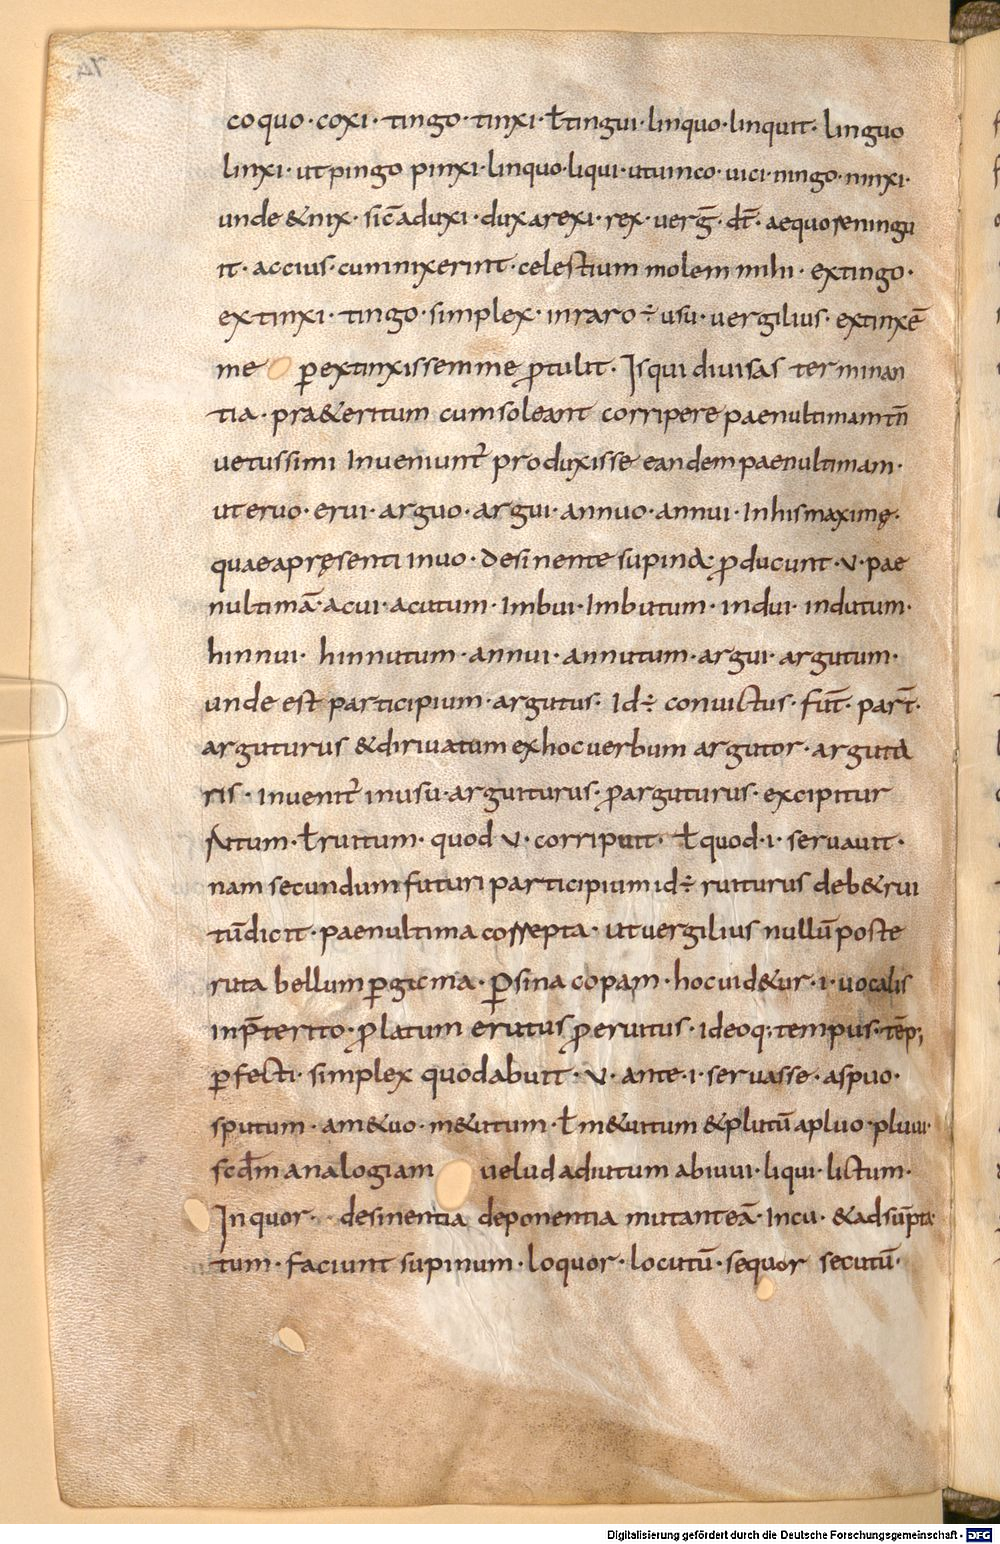 coquo · coxi · tingo · tinxi · ł tingui · linquo · linquit · linguo
linxi · ut pingo pinxi · linquo · liqui · ut uinco · uici · ningo · ninxi ·
unde & nix · sic̄ a duxi · dux a rexi · rex · verḡ · dt̄ · aequore ningu
it · accius · cum nixerint · celestium molem mihi · extingo ·
extinxi · tingo · simplex · in raro ÷ usu · uergilius · extinxē
me ꝑ extinxissem me ꝓtulit · Is qui diuisas terminan
tia · pra&eritum cum soleant corripere paenultimam tn̄
uetussimi Inueniunt᷑ produxisse eandem paenultimam ·
ut eruo · erui · arguo · argui · annuo · annui · In his maximę ·
quae a pręsenti in uo · desinente supina · ꝓducunt · v · pae
nultimā · acui · acutum · Imbui · Imbutum · indui · indutum ·
hinnui · hinnutum · annui · annutum · argui · argutum ·
unde est participium · argutus · Id ÷ conuictus · fut̄ · part̄ ·
arguturus & diriuatum ex hoc uerbum argutor · arguta
ris · inuenit᷑ in usu · arguiturus · ꝓ arguturus · excipitur
Autum · ł ruitum · quod v · corripuit · ł quod · i · seruauit ·
nam secundum futuri participium id ÷ ruiturus deb& rui
tū dicit · paenultima correpta · ut uergilius nullū post e
ruta bellum ꝑgicma · Ꝑ sina copam · hoc uid&ur · i · uocalis
in p̄terito · ꝓlatum erutus ꝓ eruitus · ideoq; tempus · tēp;
ꝑfecti · simplex quod abuit · v · ante · i · seruasse · a spuo ·
sputum · a m&uo · m&utum · ł m&uitum & plutū a pluo · pluui ·
scd̄m analogiam uelud adiutum ab iuui · liqui · lictum ·
In quor · desinentia deponentia mutant eā · In cu · & adsūpta
tum · faciunt supinum · loquor · locutū · sequor secutū ·
Digitalisierung gefördert durch die Deutsche Forschungsgemeinschaft - DFG